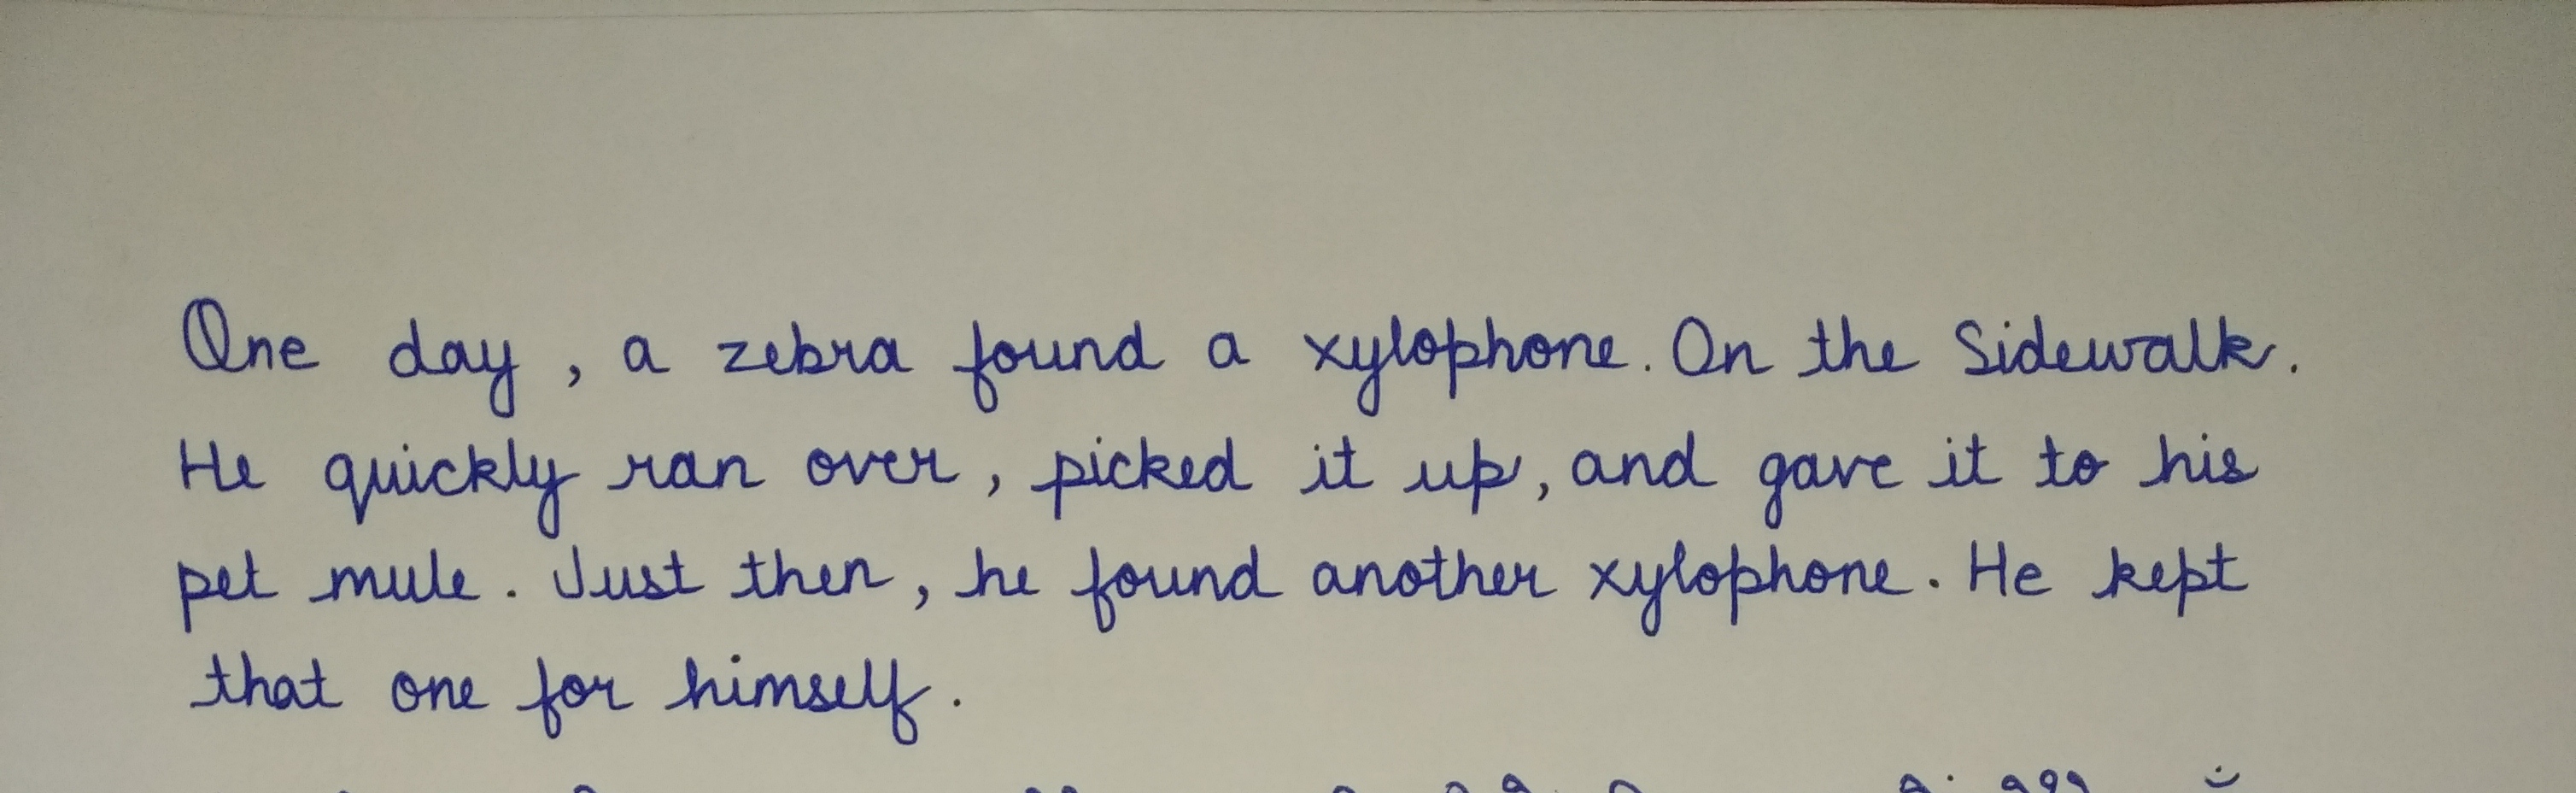 One day, a zebra found a xylophone. On the Sidewalk.
He quickly ran over, picked it up, and gave it to his
pet mule. Just then, he found another xylophone. He kept
that one for himself.